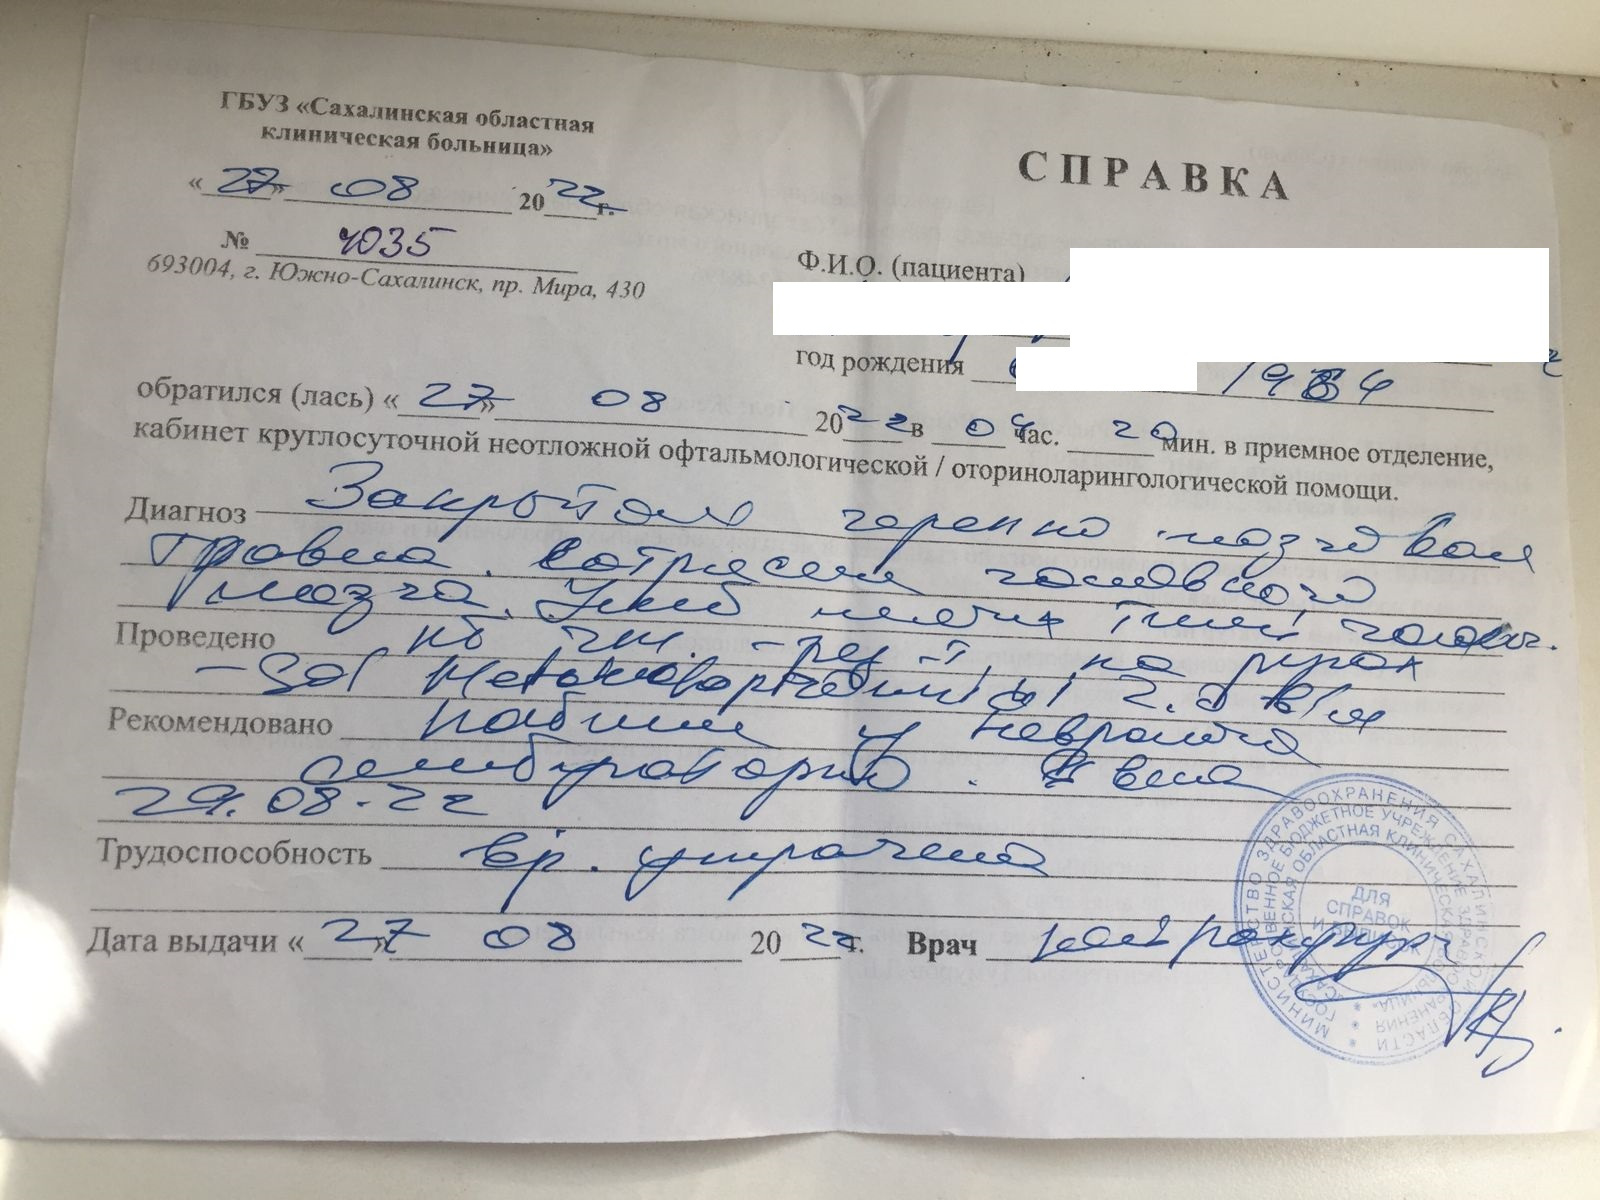 ГБУЗ «Сахалинская областная
клиническая больница»
« 27 » 08 20 22 г.
№ 4035
693004, г. Южно-Сахалинск, пр. Мира, 430
СПРАВКА
Ф.И.О. (пациента)
год рождения 1984
обратился (лась) « 27 » 08 20 22 в 04 час. 20 мин. в приемное отделение,
кабинет круглосуточной неотложной офтальмологической / оториноларингологической помощи.
Диагноз Закрытая черепно мозговая
травма. Сотрясение головного
мозга. Ушиб мягких тканей головы.
Проведено на руках
- Sol
Рекомендовано у невролога
амбулаторно. Явка
29.08.22
Трудоспособность вр. утрачена
Дата выдачи « 27 » 08 20 22 г. Врач нейрохирург
МИНИСТЕРСТВО ЗДРАВООХРАНЕНИЯ САХАЛИНСКОЙ ОБЛАСТИ
ГОСУДАРСТВЕННОЕ БЮДЖЕТНОЕ УЧРЕЖДЕНИЕ ЗДРАВООХРАНЕНИЯ
«САХАЛИНСКАЯ ОБЛАСТНАЯ КЛИНИЧЕСКАЯ БОЛЬНИЦА»
ДЛЯ
СПРАВОК
И ВЫПИСОК